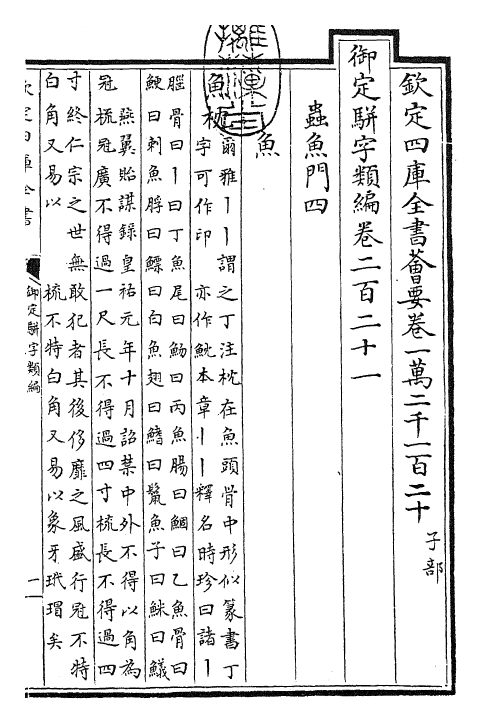 欽定四庫全書薈要卷一萬二千一百二十 子部
御定駢字類編卷二百二十一
蟲魚門四
魚
魚枕
爾雅丨丨謂之丁注枕在魚頭骨中形似篆書丁
字可作印 亦作魫本草丨丨釋名時珍曰諸丨
腦骨曰丨曰丁魚尾曰魩曰丙魚腸曰鯝曰乙魚骨曰
鯁曰刺魚脬曰鰾曰白魚翅曰鰭曰鬣魚子曰鮇曰䲑
燕翼貽謀錄皇祐元年十月詔禁中外不得以角為
冠梳冠廣不得過一尺長不得過四寸梳長不得過四
寸終仁宗之世無敢犯者其後侈靡之風盛行冠不特
白角又易以 梳不特白角又易以象牙玳瑁矣
欽定四庫全書
御定駢字類編
一